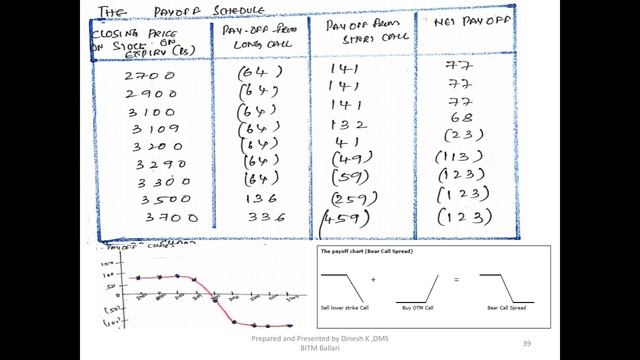 THE PAYOFF SCHEDULE
CLOSING PRICE ON STOCK ON EXPIRY (Rs)
PAY-OFF FROM LONG CALL
PAYOFF FROM SHORT CALL
NET PAYOFF
2700 (64) 141 77
2900 (64) 141 77
3100 (64) 141 77
3109 (64) 132 68
3200 (64) 41 (23)
3290 (64) (49) (113)
3300 (64) (59) (123)
3500 136 (259) (123)
3700 336 (459) (123)
PAYOFF
150
100
50
0
(50)
The payoff chart (Bear Call Spread)
+ =
Sell lower strike Call Buy OTM Call Bear Call Spread
Prepared and Presented by Dinesh K ,DMS
BITM Ballari
39